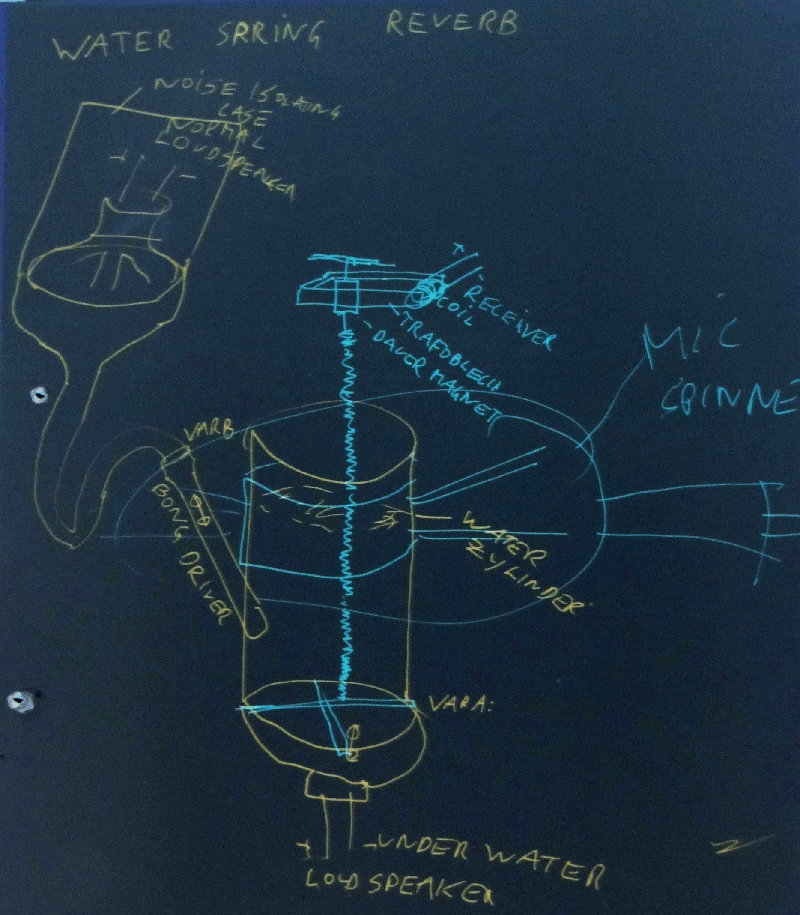 WATER SPRING REVERB
NOISE ISOLATING
CASE
NORMAL
LOUDSPEAKER
+ -
+
RECEIVER
COIL
TRAFOBLECH
DAUER MAGNET
MIC
VARB
BONG DRIVER
WATER
ZYLINDER
VARA:
+ - UNDER WATER
LOUD SPEAKER